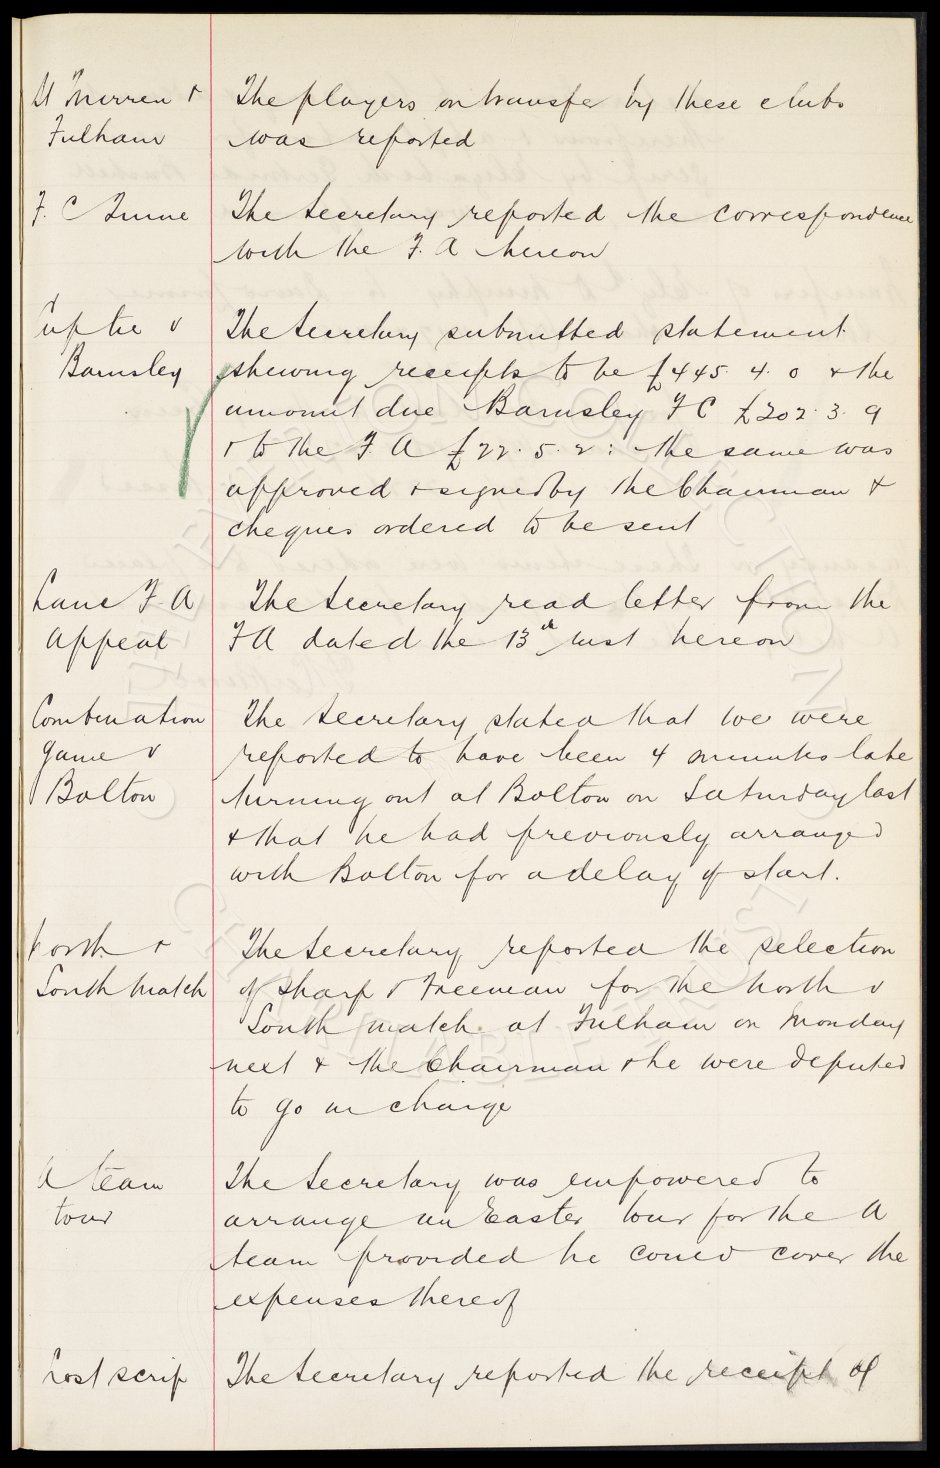 St Mirren &
Fulham
The players on transfer by these clubs
was reported
F. C
The Secretary reported the correspondence
with the F. A hereon
Cup tie v
Barnsley
The Secretary submitted statement
shewing receipts to be £445. 4. 0 & the
amount due Barnsley F C £202. 3. 9
& to the F. A £22. 5. 2: the same was
approved & signed by the Chairman &
cheques ordered to be sent
Lanc F. A
Appeal
The Secretary read letter from the
FA dated the 13th inst hereon
Combination
game v
Bolton
The Secretary stated that we were
reported to have been 4 minutes late
turning out at Bolton on Saturday last
& that he had previously arranged
with Bolton for a delay of start.
North v
South match
The Secretary reported the selection
of Sharp & Freeman for the North v
South match at Fulham on Monday
next & the Chairman & he were deputed
to go in charge
A team
tour
The Secretary was empowered to
arrange an Easter tour for the A
team provided he could cover the
expenses thereof
Lost scrip
The Secretary reported the receipt of